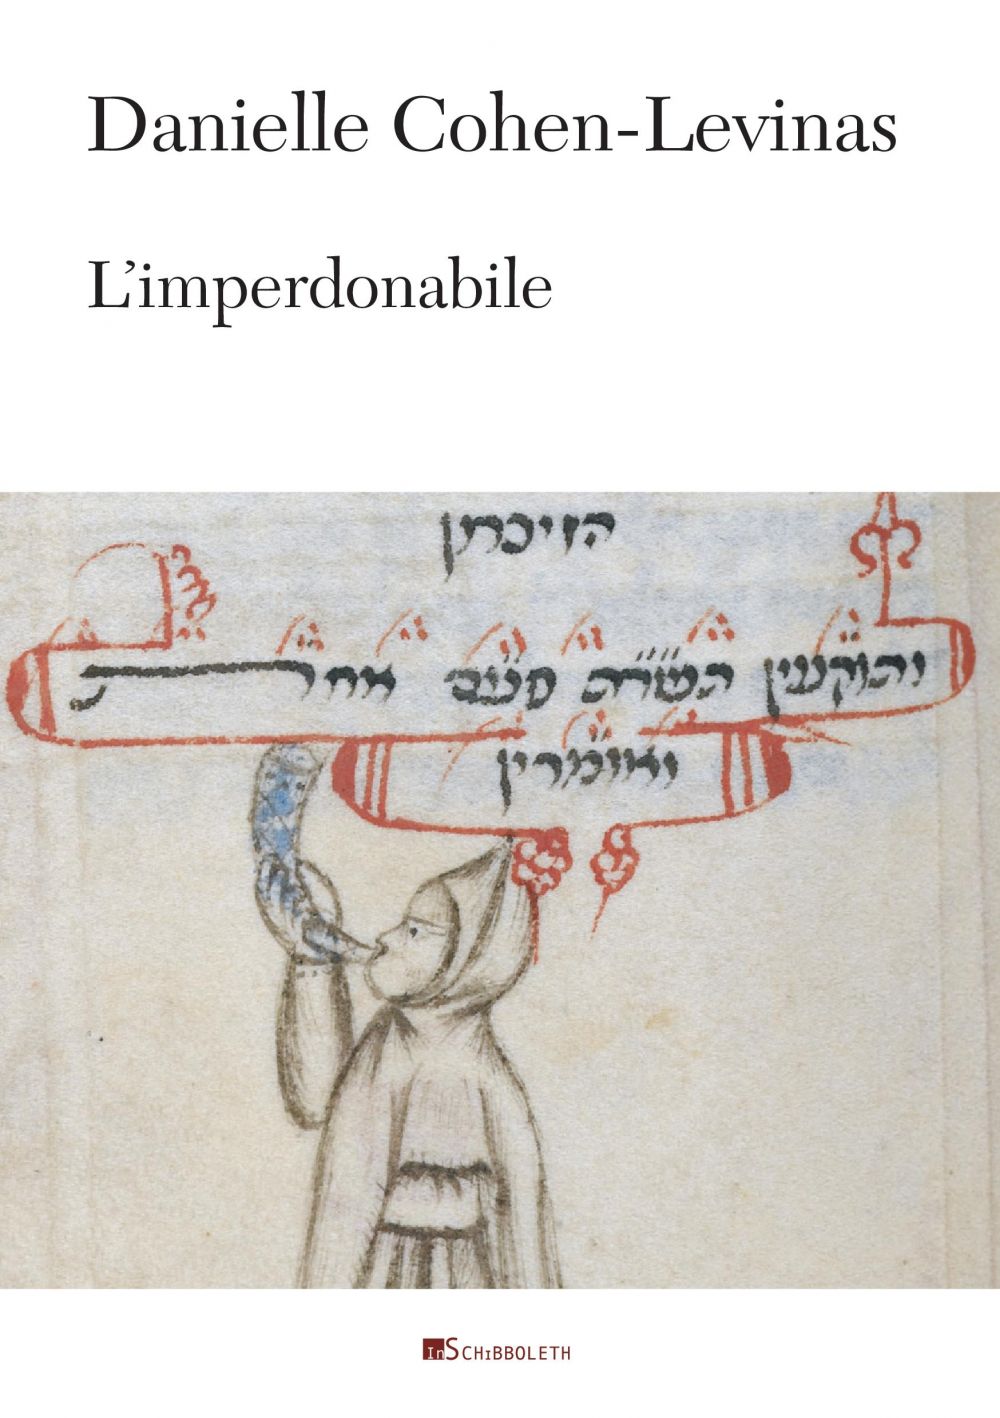 Danielle Cohen-Levinas
L’imperdonabile
הזיכרון
ותוקעין תשר״ת אחת
ואומרין
InSCHiBBOLETH